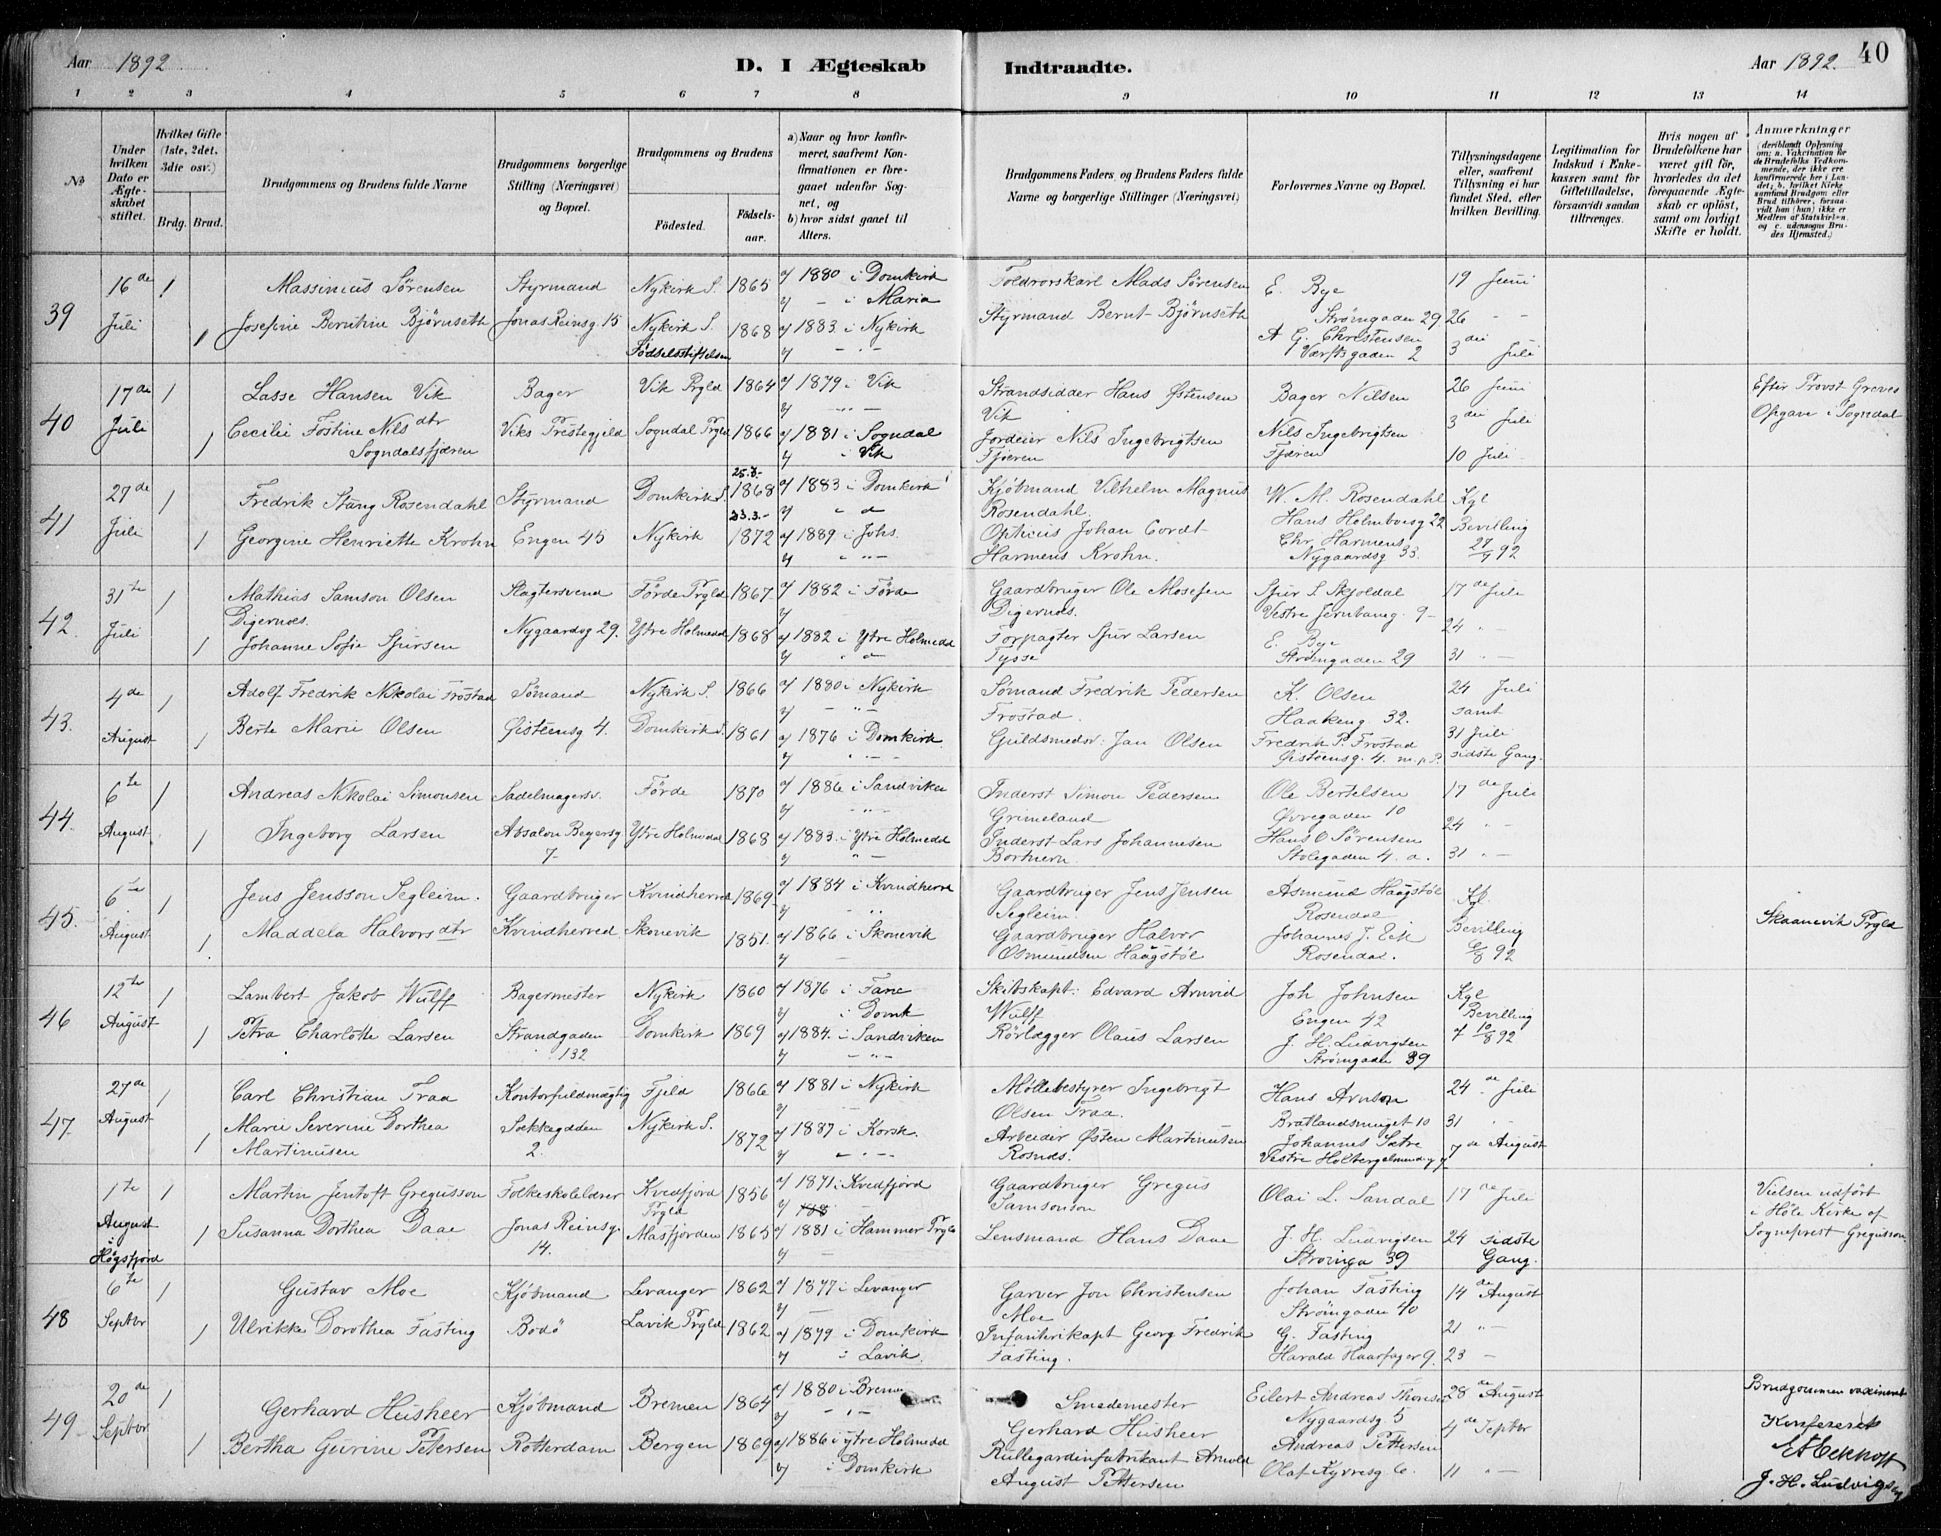 Aar 1892
D. I Ægteskab Indtraadte.
Aar 1892. 40
1 2 3 4 5 6 7 8 9 10 11 12 13 14
No
Under hvilken Dato er Ægteskabet stiftet.
Hvilket Gifte (1ste, 2det, 3die osv.)
Brdg. Brud.
Brudgommens og Brudens fulde Navne
Brudgommens borgerlige Stilling (Næringsvei) og Bopæl.
Brudgommens og Brudens
Fødested.
Fødselsaar.
a) Naar og hvor konfirmeret, saafremt Konfirmationen er foregaaet udenfor Sognet, og
b) hvor sidst gaaet til Alters.
Brudgommens Faders og Brudens Faders fulde Navne og borgerlige Stillinger (Næringsvei)
Forlovernes Navne og Bopæl.
Tillysningsdagene eller, saafremt Tillysning ei har fundet Sted, efter hvilken Bevilling.
Legitimation for Indskud i Enkekassen samt for Giftetilladelse, forsaavidt saadan tiltrænges.
Hvis nogen af Brudefolkene har været gift før, hvorledes da det foregaaende Ægteskab er opløst, samt om lovligt Skifte er holdt.
Anmærkninger (deriblandt Oplysning om: a. Vakcination for de Brudefolks Vedkommende, der ikke ere konfirmerede her i Landet; b. hvilket Kirkesamfund Brudgom eller Brud tilhører, forsaavidt han (hun) ikke er Medlem af Statskirken, og c. udensogns Brudes Hjemsted.)
39 16de Juli 1 Massinius Sörensen Styrmand Nykirk S. 1865 a) 1880 i Domkirk b) - i Maria Toldrorskarl Mads Sörensen E. Bye Strömgaden 29 19 Juni
1 Josefine Berntine Björnseth Jonas Reinsg. 15 Nykirk S. Födselsstiftelsen 1868 a) 1883 i Nykirk Styrmand Bernt Björnseth A G. Christensen Værftsgaden 2 26 - - 3die Juli
40 17de Juli 1 Lasse Hansen Vik Bager Vik Prgld 1864 a) 1879 i Vik Strandsidder Hans Østensen Vik Bager Nilsen 26 Juni Efter Provst Greves Opgave i Sogndal
1 Cecilie Fostine Nilsdtr Sogndalsfjæren Viks Prestegjeld Sogndal Prgld 1866 a) 1881 i Sogndal b) i Vik Jordeier Nils Ingebrigtsen Fjæren Nils Ingebrigtsen Fjæren 3die Juli 10 Juli
41 27de Juli 1 Fredrik Stang Rosendahl Styrmand Domkirk S. 1868 a) 1883 i Domkirk Kjöbmand Vilhelm Magnus Rosendahl. W. M. Rosendahl Hans Holmboesg 22 Kgl Bevilling
1 Georgine Henriette Krohn Engen 45 Nykirk 23.3.- 1872 a) 1889 i Johs. Opticus Johan Cordt Harmens Krohn. Chr. Harmens Nygaardsg 33.
42. 31te Juli 1 Mathias Samson Olsen Digernæs. Slagtersvend Förde Prgld 1867 a) 1882 i Förde Gaardbruger Ole Mosesen Digernæs. Sjur S. Skjoldal Vestre Jernbaneg. 9 17de Juli
1 Johanne Sofie Sjursen Nygaardsg 29. Ytre Holmedal 1868 a) 1882 i Ytre Holmedal Forpagter Sjur Larsen Tysse E. Bye Strömgaden 29 24 - 31 -
43. 4de August 1 Adolf Fredrik Nikolai Frostad Sömand Nykirk S. 1866 a) 1880 i Nykirk Sömand Fredrik Pedersen Frostad. K. Olsen Haakeng. 32. 24 Juli samt
1 Berte Marie Olsen Øisteensg 4. Domkirk S. 1861 a) 1876 i Domkirk. Guldsmedsv. Jan Olsen Fredrik P. Frostad Øisteensg. 4. 31 Juli sidste Gang.
44. 6te August 1 Andreas Nikolai Simonsen Sadelmagersv. Förde 1870 a) 1886 i Sandviken Inderst Simon Pedersen Grimeland Ole Bertelsen Øvregaden 10 17de Juli
1 Ingeborg Larsen Absalon Beyersg 7 Ytre Holmedal 1868 a) 1883 i Ytre Holmedal Inderst Lars Johannesen Hans O Sörensen Stölegaden 4. a. 24 - 31 -
45. 6te August 1 Jens Jensson Segleim. Gaardbruger Kvindherred 1869 a) 1884 i Kvindherred Gaardbruger Jens Jensen Segleim. Asmund Haagstöe Rosendal Kgl. Bevilling 6/8 92 Skaanevik Prgld
1 Maddela Halvorsdtr Kvindherred. Skonevik 1851. a) 1866 i Skonevik Gaardbruger Halvor Osmundsen Haagstöe Johannes J. Eik Rosendal.
46 12te August 1 Lambert Jakob Wulff Bagermester Nykirk 1860 a) 1876 i Fane b) i Domk Skibskapt. Edvard Arnvid Wulff Joh Johnsen Engen 42 Kgl Bevilling
1 Petra Charlotte Larsen Strandgaden 132 Domkirk 1869 a) 1884. i Sandviken Rörlægger Olaus Larsen J. H. Ludvigsen Strömgaden 39 af 10/8 92
47. 27de August 1 Carl Christian Traa Kontorfuldmægtig Fjeld 1866 a) 1881 i Nykirk Möllebestyrer Ingebrigt Olsen Traa. Hans Arneson Bratlandsmuget 10 24de Juli
1 Marie Severine Dorthea Martinusen Søkkegaden 2. Nykirk S. 1872 a) 1887 i Korsk. Arbeider Østen Martinusen Rosnæs. Johannes Sætre Vestre Holbergsalmending 7 31 - 7de August
1te August i Högsfjord 1 Martin Jentoft Gregusson Folkeskolelærer Kvedfjord Prgld 1856 a) 1871 i Kvedfjord Gaardbruger Gregus Samsonson Olai L. Sandal 17de Juli Vielsen udfört i Höle Kirke af Sogneprest Gregusson.
1 Susanna Dorthea Daae Jonas Reinsg. 14. Masfjorden 1865 a) 1881 i Hammer Prgld Lensmand Hans Daae J. H. Ludvigsen Strömga 39 24 sidste Gang.
48 6te Septbr 1 Gustav Moe Kjöbmand Levanger 1862 a) 1877 i Levanger Garver Jon Christensen Moe Johan Fasting Strömgaden 40 14de August
1 Ulrikke Dorothea Fasting Bodö Lavik Prgld 1862 a) 1879 i Domkirk b) i Lavik. Infanterikapt Georg Fredrik Fasting. G. Fasting Harald Haarfager 9. 21 - 23 -
49 20de Septbr 1 Gerhard Husheer Kjöbmand Bremen 1864 a) 1880 i Bremen Smedemester Gerhard Husheer Eilert Andreas Thomsen Nygaardsg 5 28de August Brudgommen vaccineret
1 Bertha Gurine Petersen Rotterdam Bergen 1869 a) 1886 i ytre Holmedal b) i Domkirk Rullegardinfabrikant Arnold August Pettersen Andreas Pettersen Olaf Kyrresg 6. 4de Septbr 11 - Konfereret
J. H. Ludvigsen